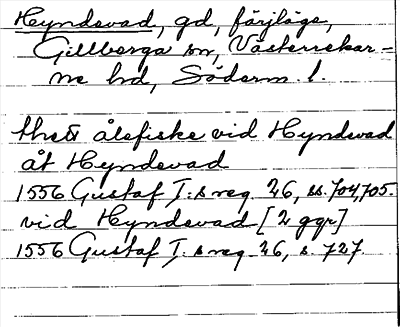 Hyndevad, gd, färjläge,
Gillberga sn, Västerrekar-
ne hd, Söderm. l.
thet ålefiske vid Hyndevad
åt Hyndevad
1556 Gustaf I:s reg. 26, ss. 704, 705.
vid Hyndevad [2 ggr]
1556 Gustaf I:s reg. 26, s. 727.